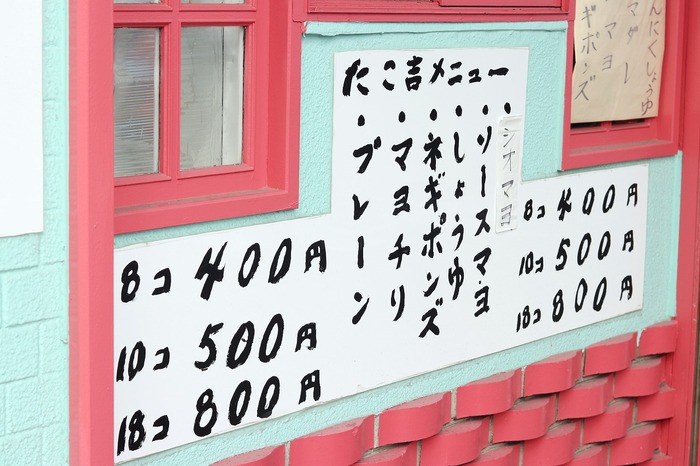 たこ吉メニュー
・シオマヨ
・ソースマヨ
・しょうゆ
・ネギポンズ
・マヨチリ
・プレーン
8コ 400円
10コ 500円
18コ 800円
8コ 400円
10コ 500円
18コ 800円
んにくしょうゆ
マダー
マヨ
ギポンズ